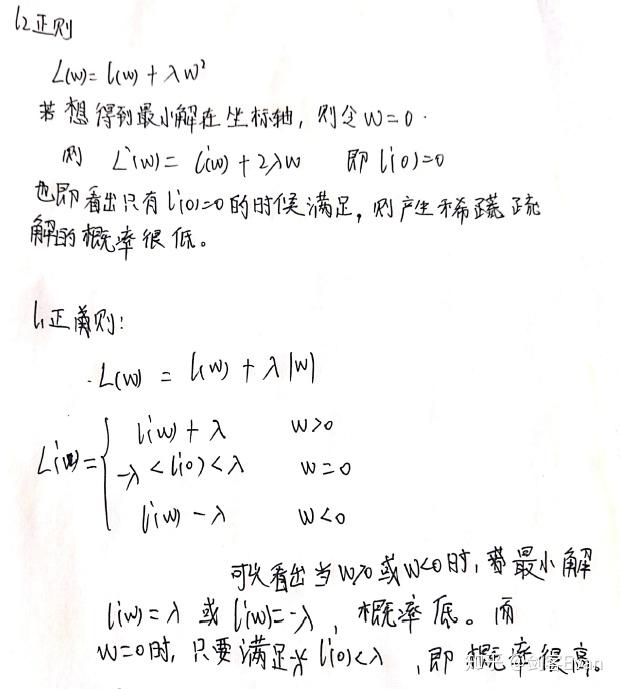 l2正则
L(w)= l(w) + λw²
若想得到最小解在坐标轴，则令w=0.
则 L'(w)= l'(w)+2λw 即l'(0)=0
也即看出只有l'(0)=0的时候满足，则产生稀疏
解的概率很低。
l1正则：
L(w) = l(w) + λ|w|
l'(w) + λ w>0
L'(w)= { -λ < l'(0) < λ w=0
l'(w) - λ w<0
可以看出当w>0或w<0时，若最小解
l'(w)=λ 或 l'(w)=-λ，概率低。而
w=0时，只要满足-λ<l'(0)<λ，即概率很高。
知乎 @剑客Evan